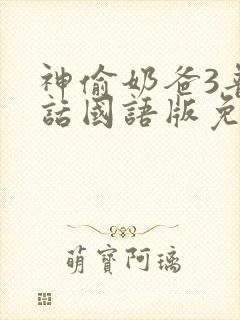 神偷奶爸3普
話國語版免
萌寶阿璃